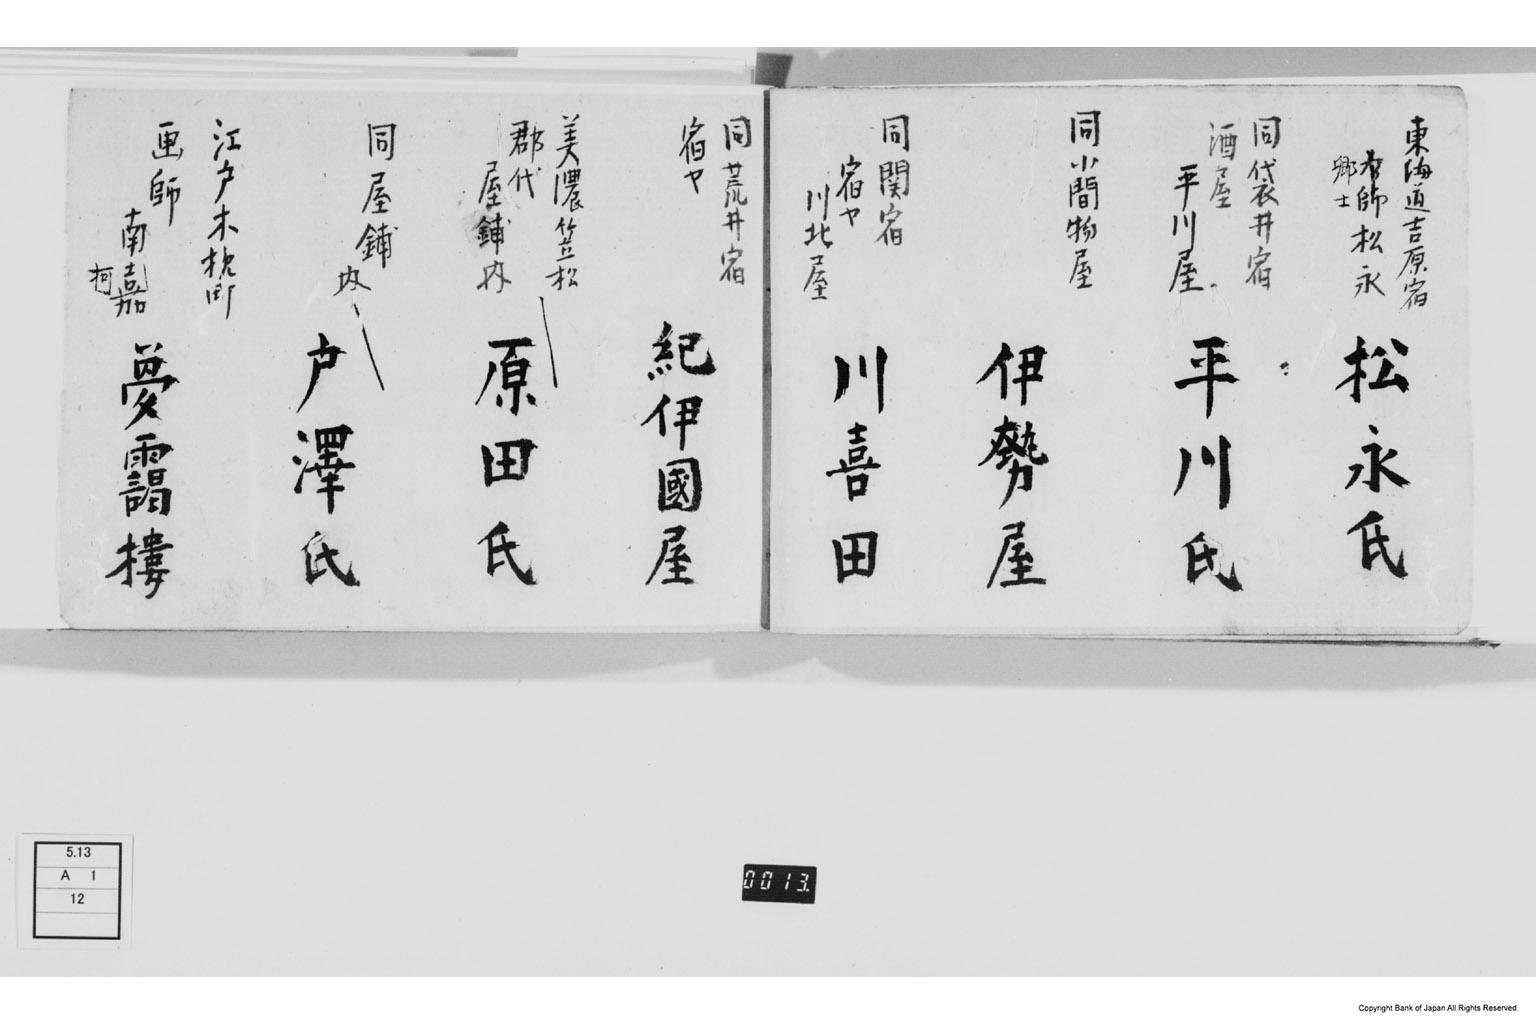 東海道吉原宿
師松永
郷士
松永氏
同袋井宿
酒屋
平川屋
平川氏
同小間物屋
伊勢屋
同関宿
宿ヤ
川北屋
川喜田
同荒井宿
宿ヤ
紀伊國屋
美濃笠松
郡代
屋鋪内
原田氏
同屋鋪
内
戸澤氏
江戸木挽町
画師
南嘉
柯
夢靄樓
5.13
A 1
12
0013.
Copyright Bank of Japan All Rights Reserved.